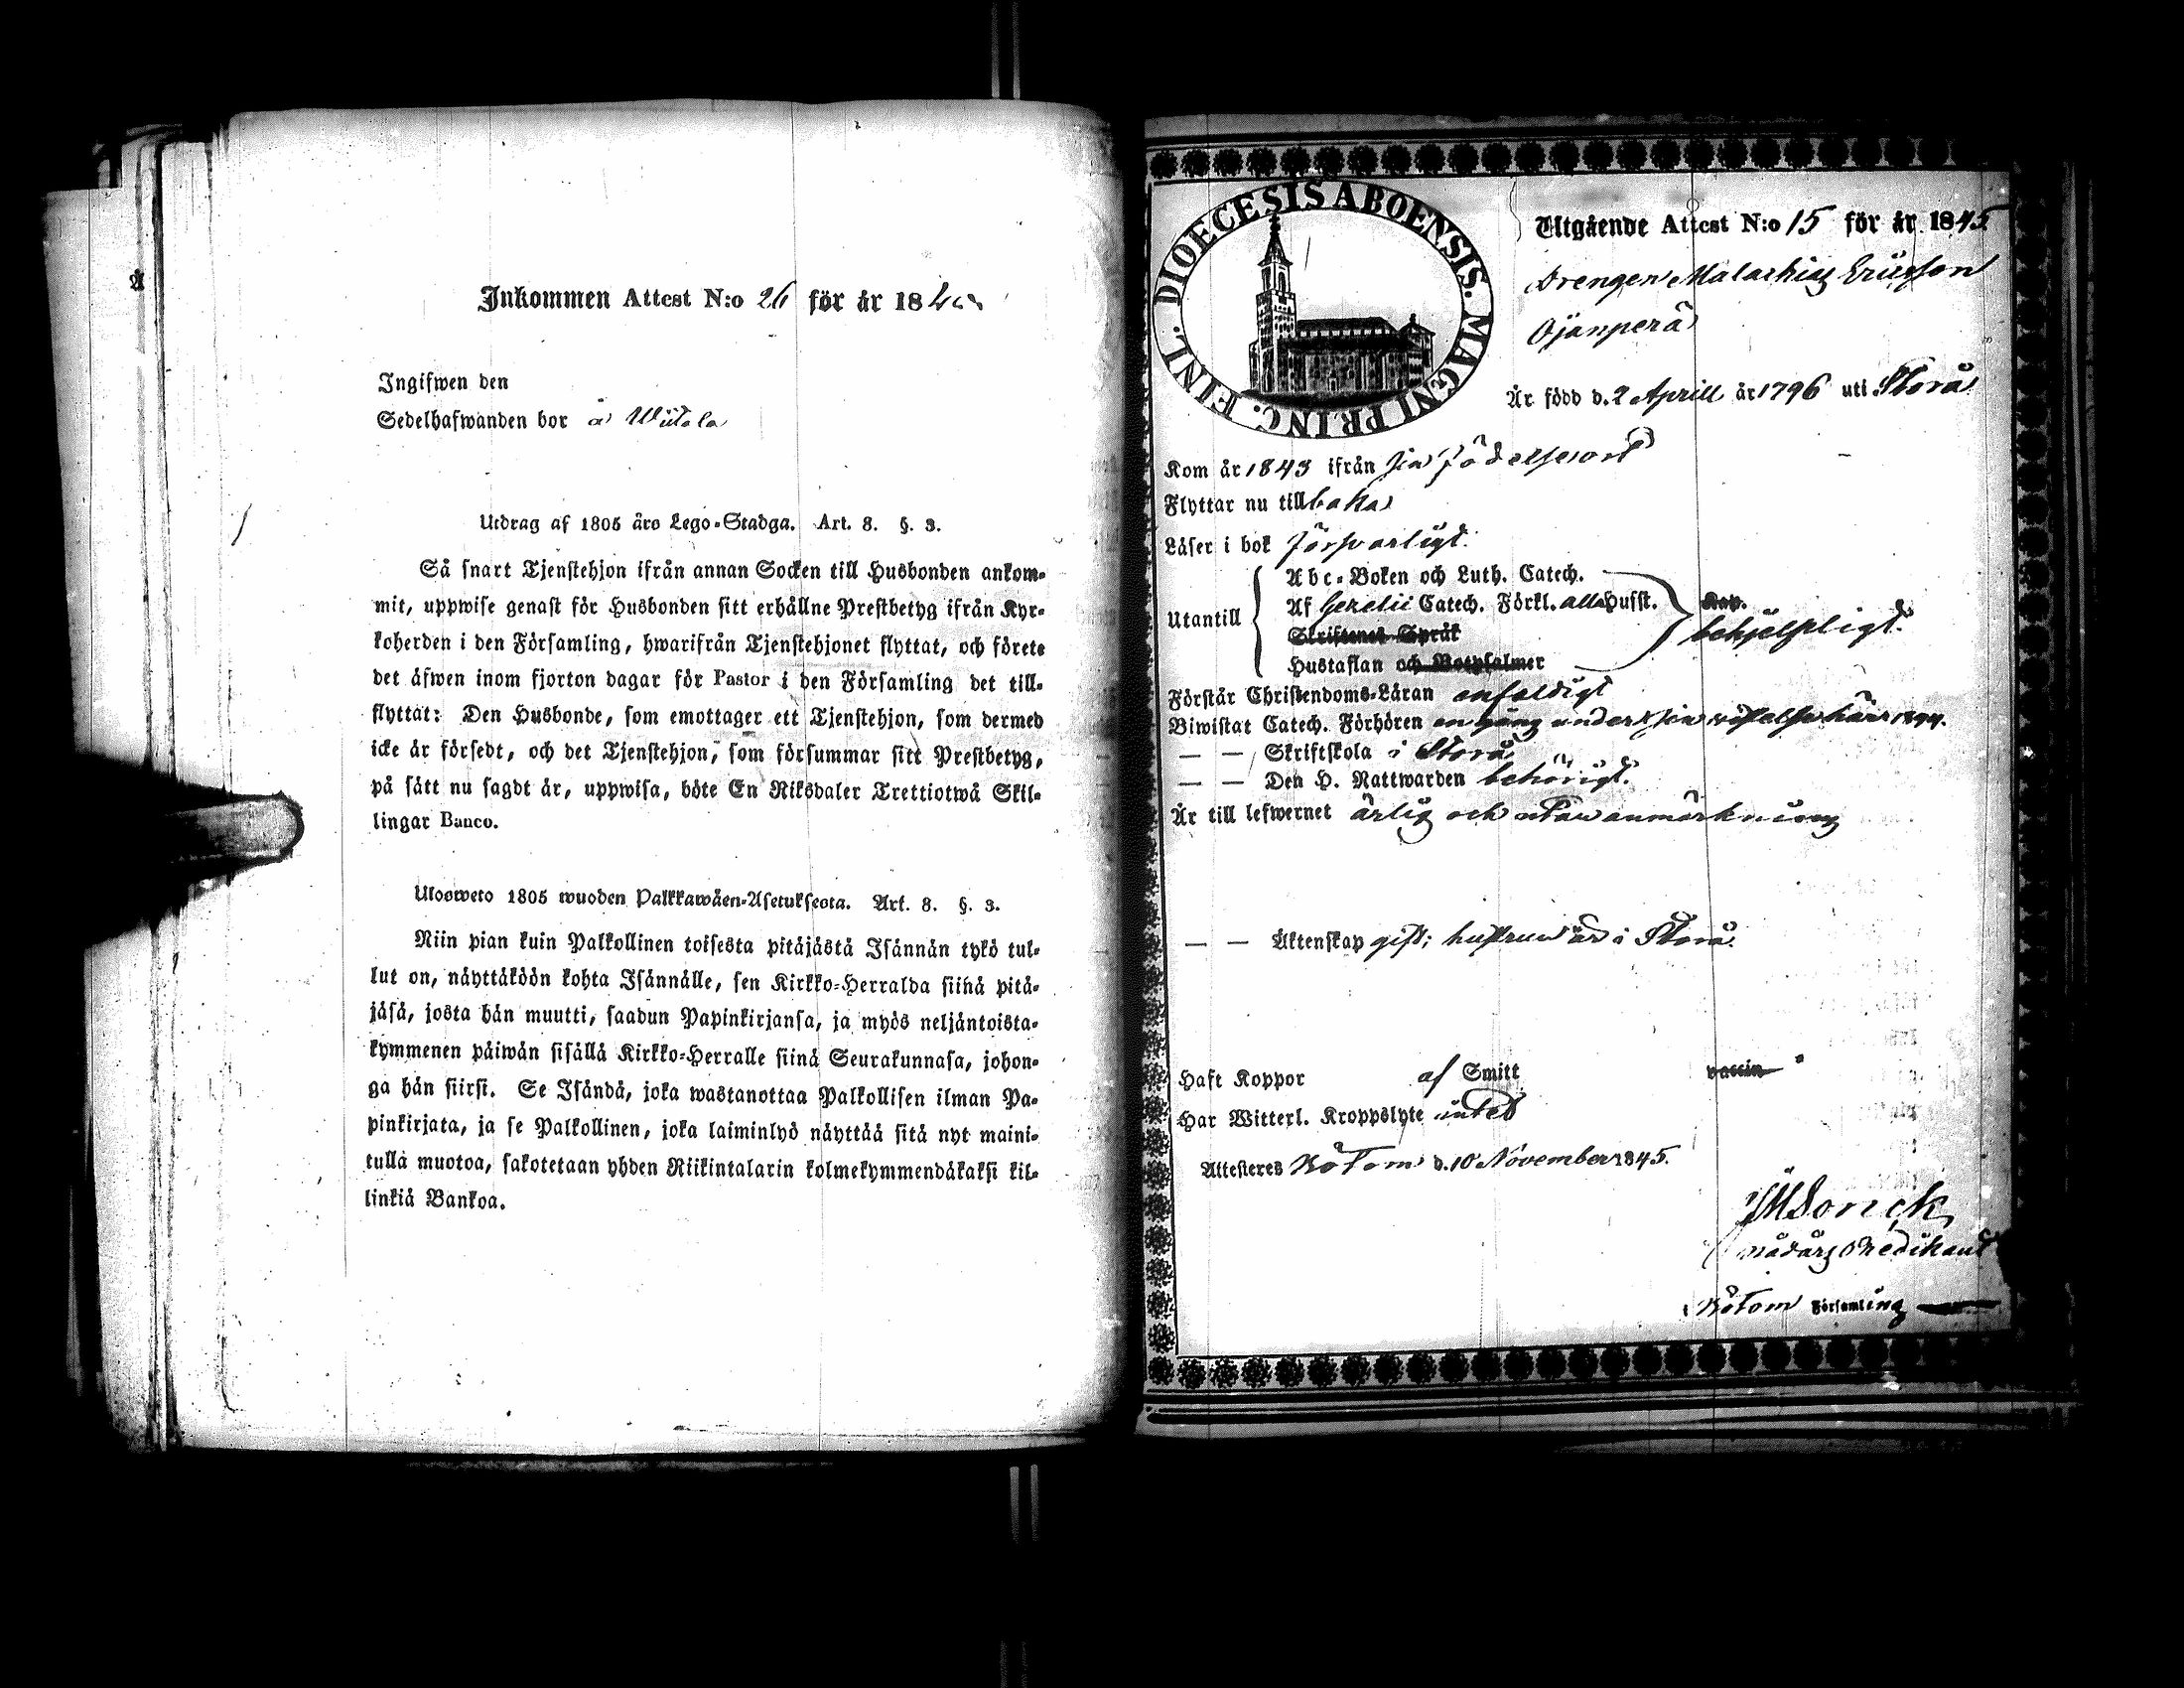 Inkommen Attest N:o 26 för år 18
Ingifwen den
Sedelhafwanden bor å Wiitala
Utdrag af 1805 års Lego-Stadga. Art. 8. §. 3.
Så snart Tjenstehjon ifrån annan Socken till Husbonden ankom-
mit, uppwise genast för Husbonden sitt erhållne Prestbetyg ifrån Kyr-
koherden i den Församling, hwarifrån Tjenstehjonet flyttat, och förete
det äfwen inom fjorton dagar för Pastor i den Församling det till-
flyttat: Den Husbonde, som emottager ett Tjenstehjon, som dermed
icke är försedt, och det Tjenstehjon, som försummar sitt Prestbetyg,
på sätt nu sagdt är, uppwisa, böte En Riksdaler Trettiotwå Skil-
lingar Banco.
Ulosweto 1805 wuoden Palkkawäen-Asetuksesta. Art. 8. §. 3.
Niin pian kuin Palkollinen toisesta pitäjästä Isännän tykö tul-
lut on, näyttäköön kohta Isännälle, sen Kirkko-Herralda siinä pitä-
jäsä, josta hän muutti, saadun Papinkirjansa, ja myös neljäntoista-
kymmenen päiwän sisällä Kirkko-Herralle siinä Seurakunnasa, johon-
ga hän siirsi. Se Isändä, joka wastanottaa Palkollisen ilman Pa-
pinkirjata, ja se Palkollinen, joka laiminlyö näyttää sitä nyt maini-
tulla muotoa, sakotetaan yhden Riikintalarin kolmekymmendäkaksi kil-
linkiä Bankoa.
DIOECESIS ABOENSIS. MAGNI PRINC. FINL.
Utgående Attest N:o 15 för år 1845
Drengen Malachias Ericsson
Ojanperä
Är född d. 2 Aprill år 1796 uti Storå
Kom år 1843 ifrån sin födelseort
Flyttar nu tillbaka
Läser i bok försvarligt.
Utantill
Abc-Boken och Luth. Catech.
Af Gezelii Catech. Förkl. alla Hufst.
Skriftenes Språk
Hustaflan och Botpsalmer
Kap.
behjelpligt.
Förstår Christendoms-Läran enfaldigt
Biwistat Catech. Förhören en gång under sin vistelse här 1844.
— — Skriftskola i Storå
— — Den H. Nattwarden behörigt.
Är till lefwernet ärlig och utan anmärkning
— — Äktenskap gift; hustrun är i Storå.
Haft Koppor af Smitt vaccin
Har Witterl. Kroppslyte intet
Attesteres Bötom d. 10 November 1845.
Sonck
Nådårs Predikant
i Bötom Församling